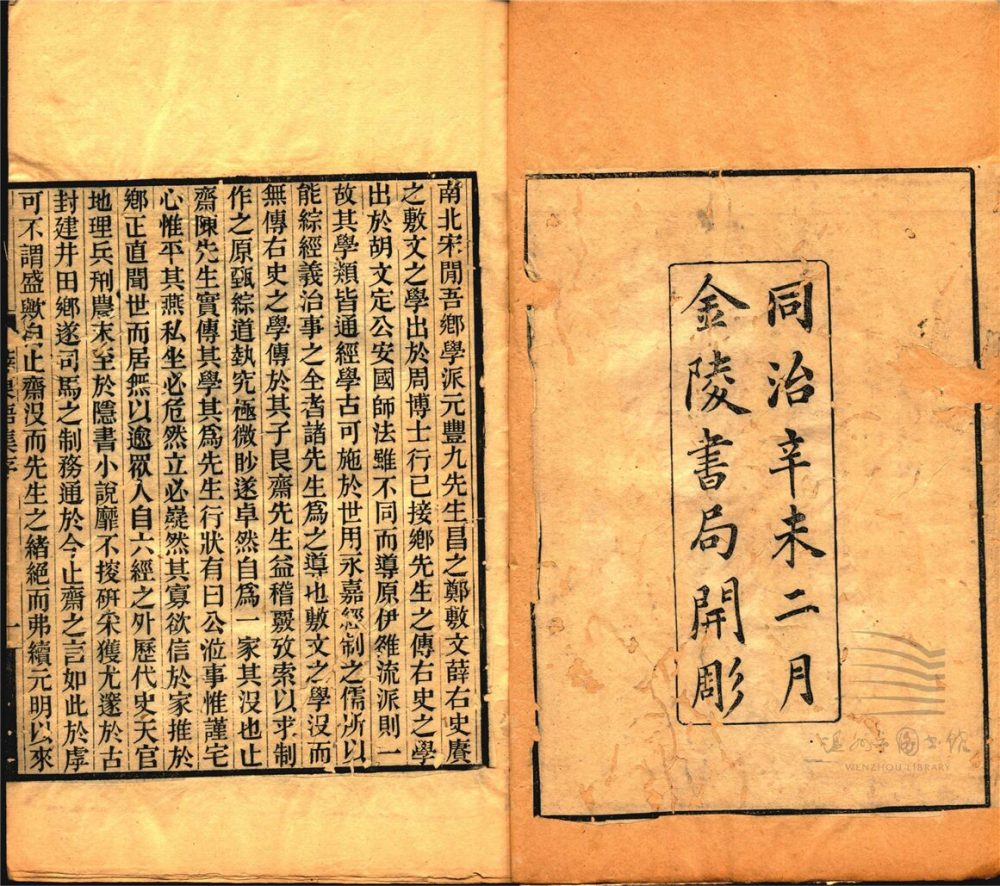 同治辛未二月
金陵書局開彫
南北宋閒吾鄉學派元豐九先生昌之鄭敷文薛右史賡
之敷文之學出於周博士行已接鄉先生之傳右史之學
出於胡文定公安國師法雖不同而導原伊雒流派則一
故其學類皆通經學古可施於世用永嘉經制之儒所以
能綜經義治事之全者諸先生為之導也敷文之學沒而
無傳右史之學傳於其子艮齋先生益稽覈攷索以求制
作之原甄綜道埶究極微眇遂卓然自為一家其沒也止
齋陳先生實傳其學其為先生行狀有曰公涖事惟謹宅
心惟平其燕私坐必危然立必嶷然其寡欲信於家推於
鄉正直聞世而居無以逾眾人自六經之外歷代史天官
地理兵刑農末至於隱書小說靡不搜研采獲尤邃於古
封建井田鄉遂司馬之制務通於今止齋之言如此於虖
可不謂盛歟自止齋沒而先生之緒絕而弗續元明以來
語集序
一
温州市图书馆
WENZHOU LIBRARY